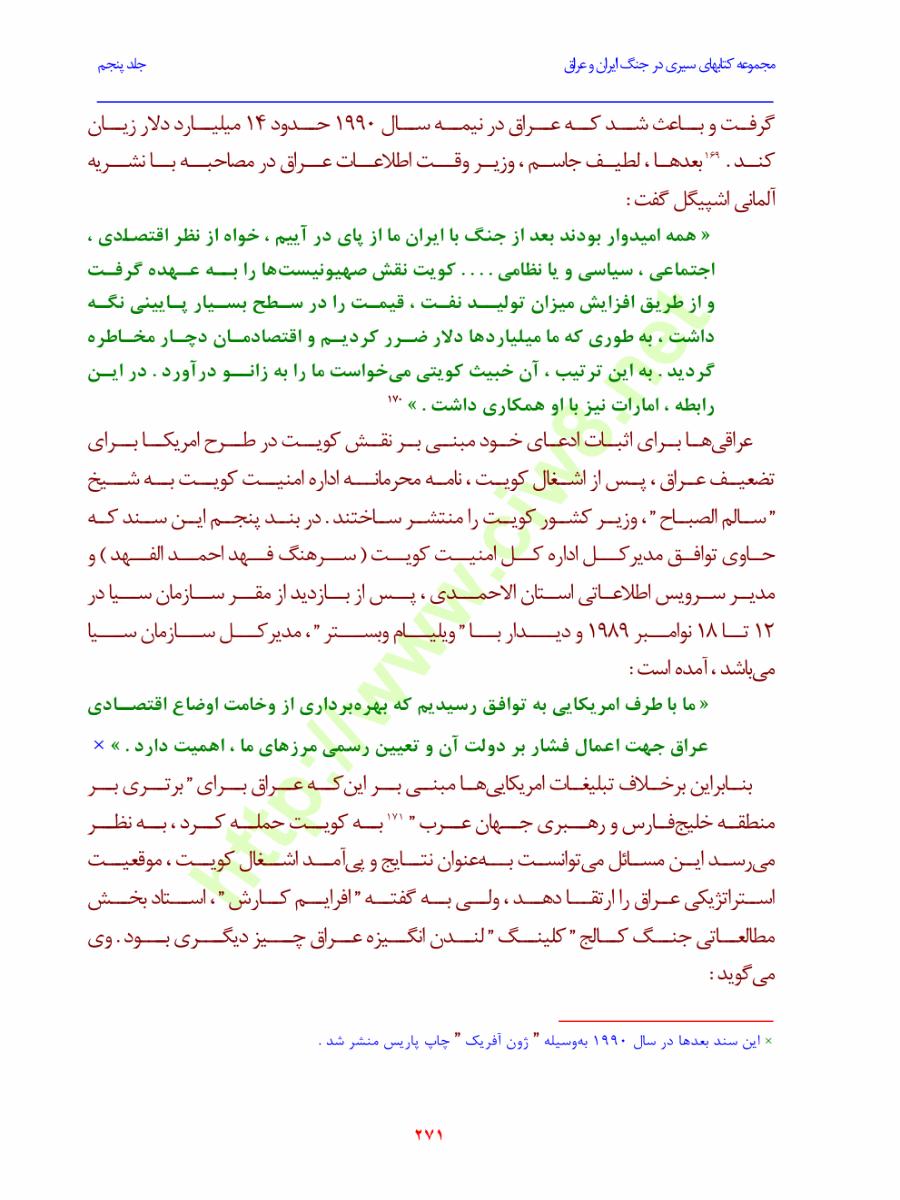 مجموعه کتابهای سیری در جنگ ایران و عراق جلد پنجم
گرفت و باعث شد که عراق در نیمه سال ۱۹۹۰ حدود ۱۴ میلیارد دلار زیان
کند . ۱۶۹ بعدها ، لطیف جاسم ، وزیر وقت اطلاعات عراق در مصاحبه با نشریه
آلمانی اشپیگل گفت :
« همه امیدوار بودند بعد از جنگ با ایران ما از پای در آییم ، خواه از نظر اقتصادی ،
اجتماعی ، سیاسی و یا نظامی .... کویت نقش صهیونیست‌ها را به عهده گرفت
و از طریق افزایش میزان تولید نفت ، قیمت را در سطح بسیار پایینی نگه
داشت ، به طوری که ما میلیاردها دلار ضرر کردیم و اقتصادمان دچار مخاطره
گردید . به این ترتیب ، آن خبیث کویتی می‌خواست ما را به زانو درآورد . در این
رابطه ، امارات نیز با او همکاری داشت . » ۱۷۰
عراقی‌ها برای اثبات ادعای خود مبنی بر نقش کویت در طرح امریکا برای
تضعیف عراق ، پس از اشغال کویت ، نامه محرمانه اداره امنیت کویت به شیخ
"سالم الصباح" ، وزیر کشور کویت را منتشر ساختند . در بند پنجم این سند که
حاوی توافق مدیرکل اداره کل امنیت کویت ( سرهنگ فهد احمد الفهد ) و
مدیر سرویس اطلاعاتی استان الاحمدی ، پس از بازدید از مقر سازمان سیا در
۱۲ تا ۱۸ نوامبر ۱۹۸۹ و دیدار با "ویلیام وبستر" ، مدیرکل سازمان سیا
می‌باشد ، آمده است :
« ما با طرف امریکایی به توافق رسیدیم که بهره‌برداری از وخامت اوضاع اقتصادی
عراق جهت اعمال فشار بر دولت آن و تعیین رسمی مرزهای ما ، اهمیت دارد . » ×
بنابراین برخلاف تبلیغات امریکایی‌ها مبنی بر این‌که عراق برای "برتری بر
منطقه خلیج‌فارس و رهبری جهان عرب" ۱۷۱ به کویت حمله کرد ، به نظر
می‌رسد این مسائل می‌توانست به‌عنوان نتایج و پی‌آمد اشغال کویت ، موقعیت
استراتژیکی عراق را ارتقا دهد ، ولی به گفته "افرایم کارش" ، استاد بخش
مطالعاتی جنگ کالج "کلینگ" لندن انگیزه عراق چیز دیگری بود . وی
می‌گوید :
× این سند بعدها در سال ۱۹۹۰ به‌وسیله " ژون آفریک " چاپ پاریس منشر شد .
۲۷۱
http://www.ciw8.net